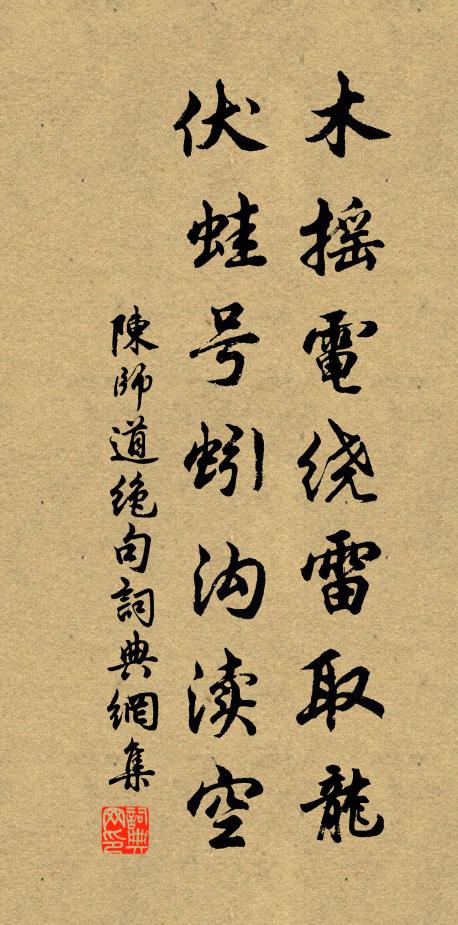 木摇電绕雷取龍
伏蛙号蚓沟渎空
陳師道絶句詞典網集
詞典
网印